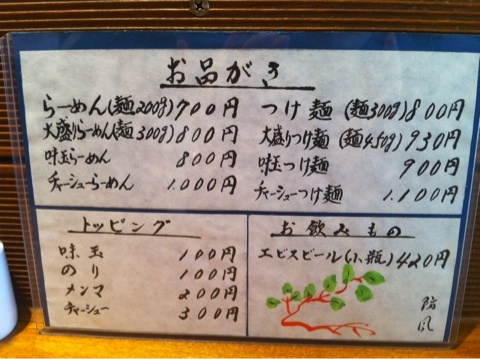 お品がき
らーめん(麺200g)700円
大盛りらーめん(麺300g)800円
味玉らーめん 800円
チャーシューらーめん 1.000円
つけ麺 (麺300g)800円
大盛りつけ麺(麺450g)930円
味玉つけ麺 900円
チャーシューつけ麺 1.100円
トッピング
味玉 100円
のり 100円
メンマ 200円
チャーシュー 300円
お飲みもの
エビスビール(小瓶)420円
防風